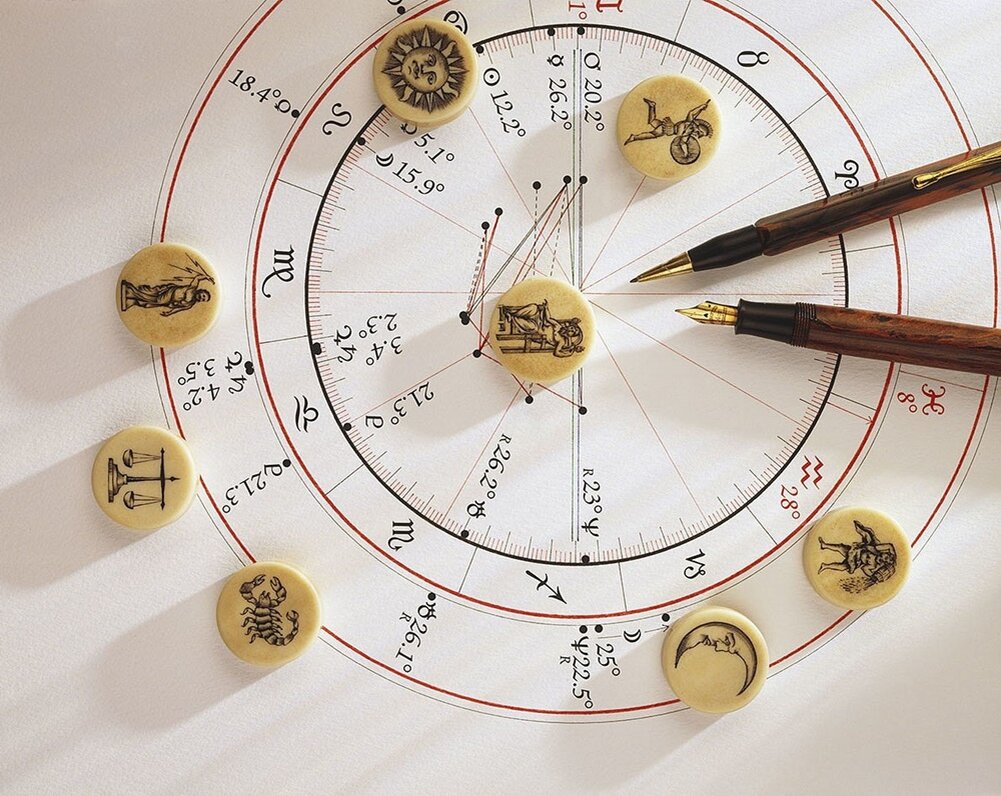 1° ♊
♉
18.4° ☊
☉ 12.2°
☿ 26.2°
♂ 20.2°
♌
5.1°
☽ 15.9°
♈
♍
2.3°
3.4° ♄
♃
♄
♃
3.5°
4.2°
♓
8°
♎
21.3° ♇
♇ 21.3°
R 26.2° ♅
R 23° ♆
♒
28°
♏
♐
♑
♅ 26.1°
R
25° ☽
♆ 22.5°
R